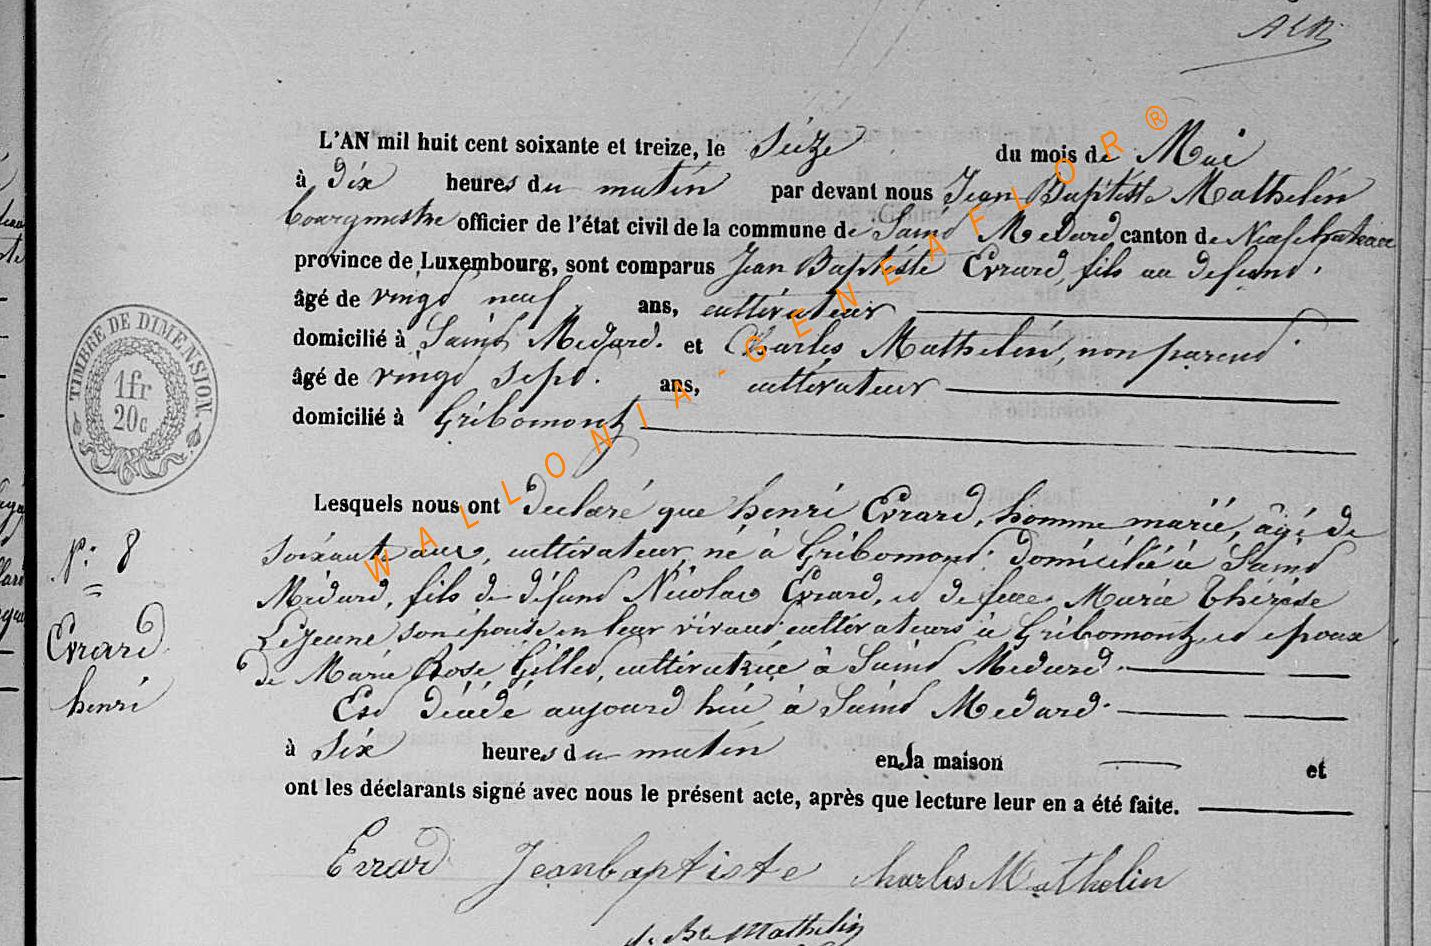 L'AN mil huit cent soixante et treize, le Seize du mois de Mai
à dix heures du matin par devant nous Jean Baptiste Mathelin
bourgmestre officier de l'état civil de la commune de Saint Medard canton de Neufchateau
province de Luxembourg, sont comparus Jean Baptiste Evrard, fils au defunt.
âgé de vingt neuf ans, cultivateur
domicilié à Saint Medard. et Charles Mathelin, non parent
âgé de vingt sept. ans, cultivateur
domicilié à Gribomont
TIMBRE DE DIMENSION
1fr
20c
Lesquels nous ont declaré que henri Evrard, homme marié, âgé de
soixante ans, cultivateur né à Gribomont. domicilié à Saint
Médard, fils de défunt Nicolas Evrard, et de feue Marie Thérèse
Lejeune son épouse en leur vivant cultivateurs à Gribomont, et epoux
de Marie Rose Gilles, cultivatrice à Saint Medard.
Est décédé aujourd hui à Saint Medard.
à Six heures du matin en la maison et
ont les déclarants signé avec nous le présent acte, après que lecture leur en a été faite.
N: 8
Evrard
henri
Evrard Jeanbaptiste Charles Mathelin
J. Bte Mathelin
WALLONIA-GENEAFLOR®